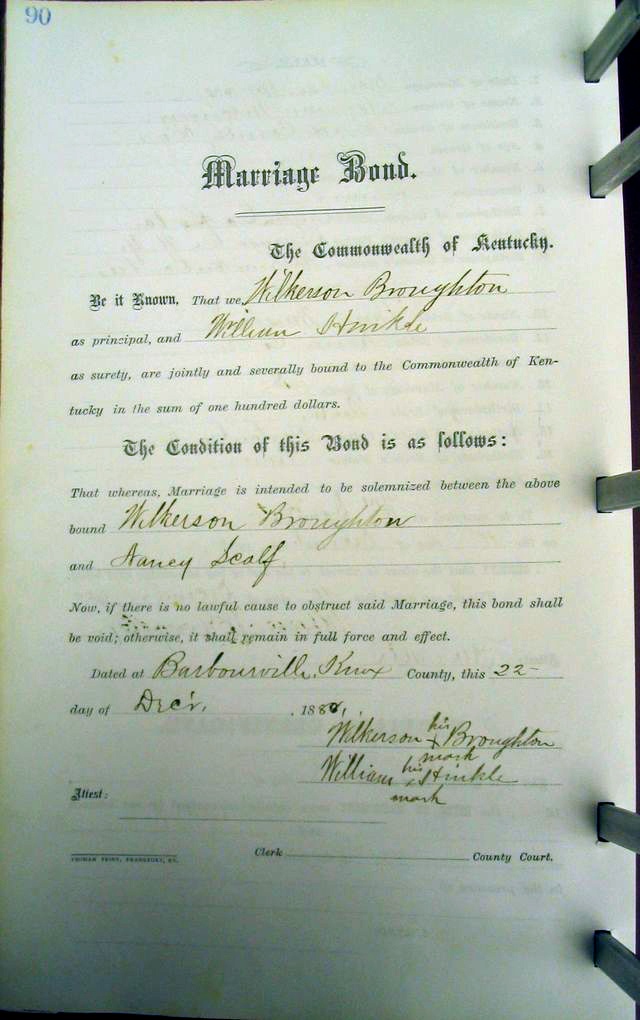 90
Marriage Bond.
The Commonwealth of Kentucky.
Be it Known, That we, Wilkerson Broughton
as principal, and William Hinkle
as surety, are jointly and severally bound to the Commonwealth of Ken-
tucky in the sum of one hundred dollars.
The Condition of this Bond is as follows:
That whereas, Marriage is intended to be solemnized between the above
bound Wilkerson Broughton
and Nancy Scalf
Now, if there is no lawful cause to obstruct said Marriage, this bond shall
be void; otherwise, it shall remain in full force and effect.
Dated at Barbourville, Knox County, this 22
day of Dec'r, 188
Wilkerson his x mark Broughton
William his x mark Hinkle
Attest:
Clerk County Court.
YEOMAN PRINT, FRANKFORT, KY.